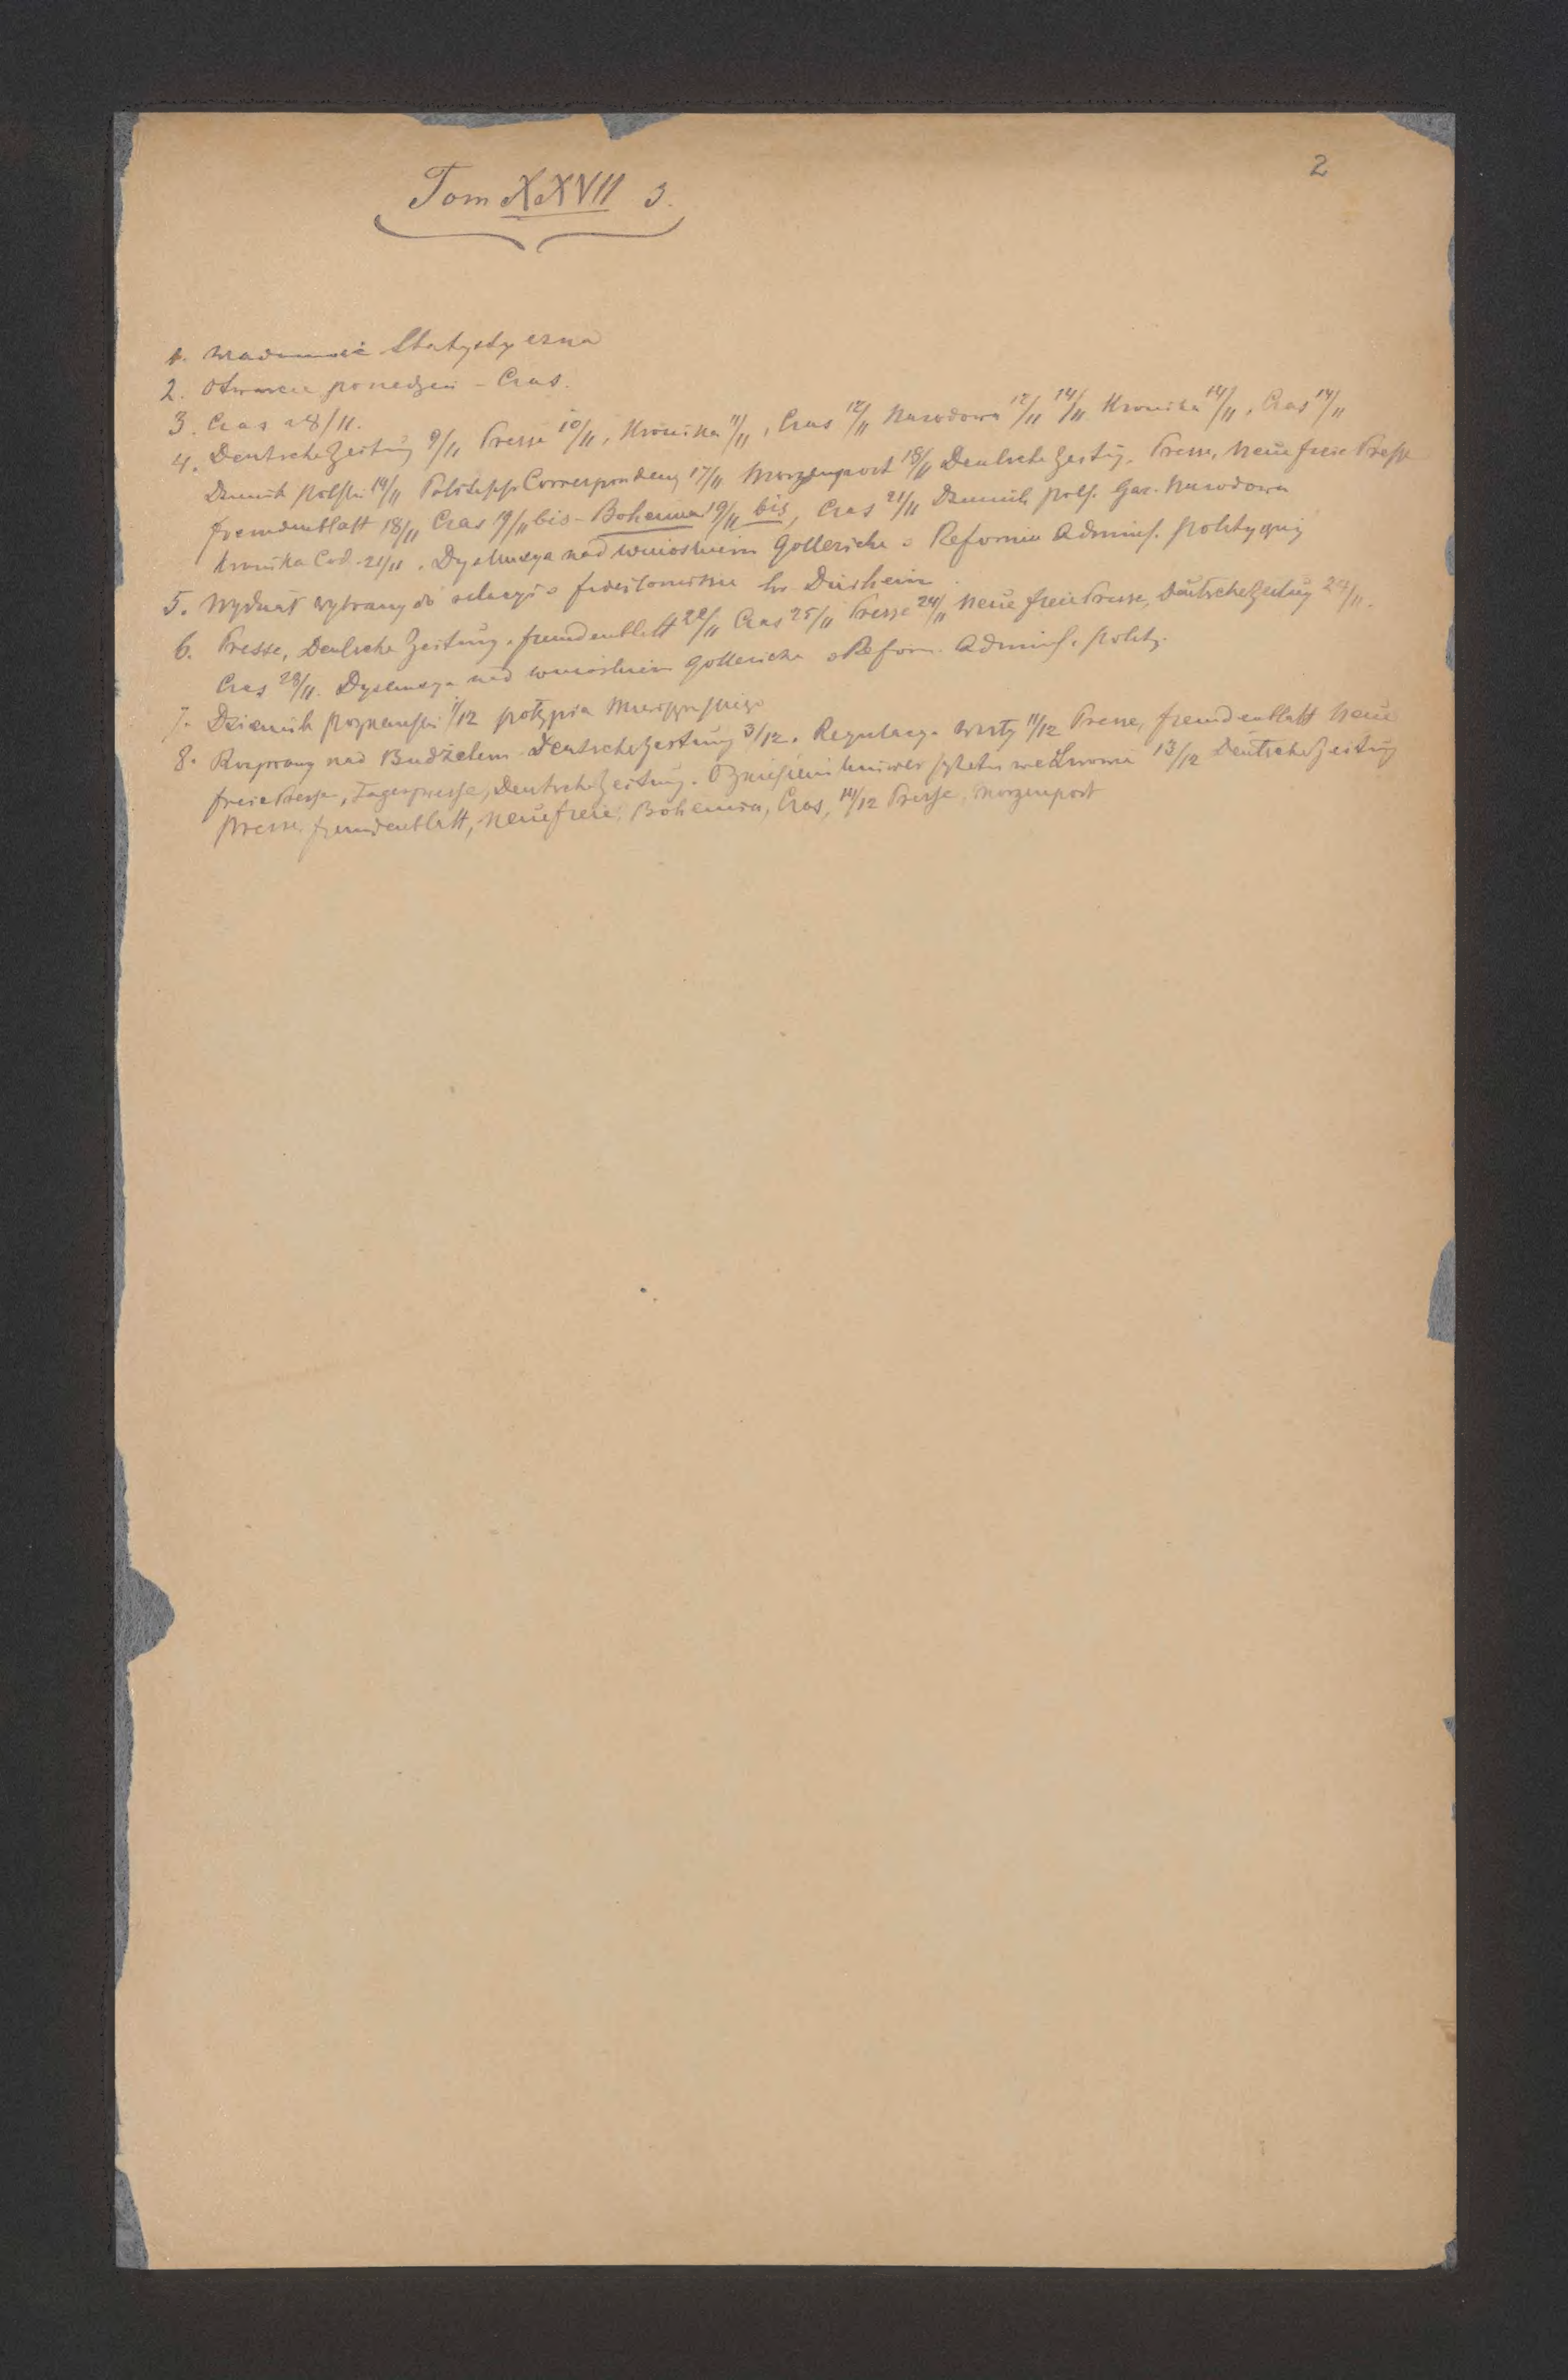 2
Tom XXVII 3.
1. Wiadomość Statystyczna
2. Otwarcie posiedzeń - Czas.
3. Czas z 8/11.
4. Deutsche Zeitung 9/11 Presse 10/11, Kronika 11/11, Czas 12/11 Narodowa 12/11 14/11 Kronika 14/11, Czas 14/11
Dziennik polski 14/11 Correspondenz 17/11 Morgenpost 18/11 Deutsche Zeitug. Presse, Neue freie Presse
fremdenblatt 18/11 Czas 19/11 bis - Bohemia 19/11 bis, Czas 21/11 Dziennik pols. Gaz. Narodowa
Kronika Cod. 21/11. Dyskusya nad wnioskiem Gollericha o Reformie Adminis. politycznej
5. Wydział wybrany do relacyi o hr Dürheim.
6. Presse, Deutsche Zeitung, fremdenblatt 22/11 Czas 25/11 Presse 24/11 Neue freie Presse, Deutsche Zeitug 24/11.
Czas 28/11. Dyskusya nad wnioskiem Gollericha o Reform. Adminis. polity.
7. Dziennik poznański 1/12 potępia
8. Rozprawy nad Budżetem Deutsche Zeitung 3/12. Regulacya Wisły 11/12 Presse, fremdenblatt Neue
freie Presse, Tagespresse, Deutsche Zeitung. O zniesieniu Uniwersytetu we Lwowie 13/12 Deutsche Zeitug
Presse fremdenblatt, Neue freie, Bohemia, Czas, 14/12 Presse, Morgenpost